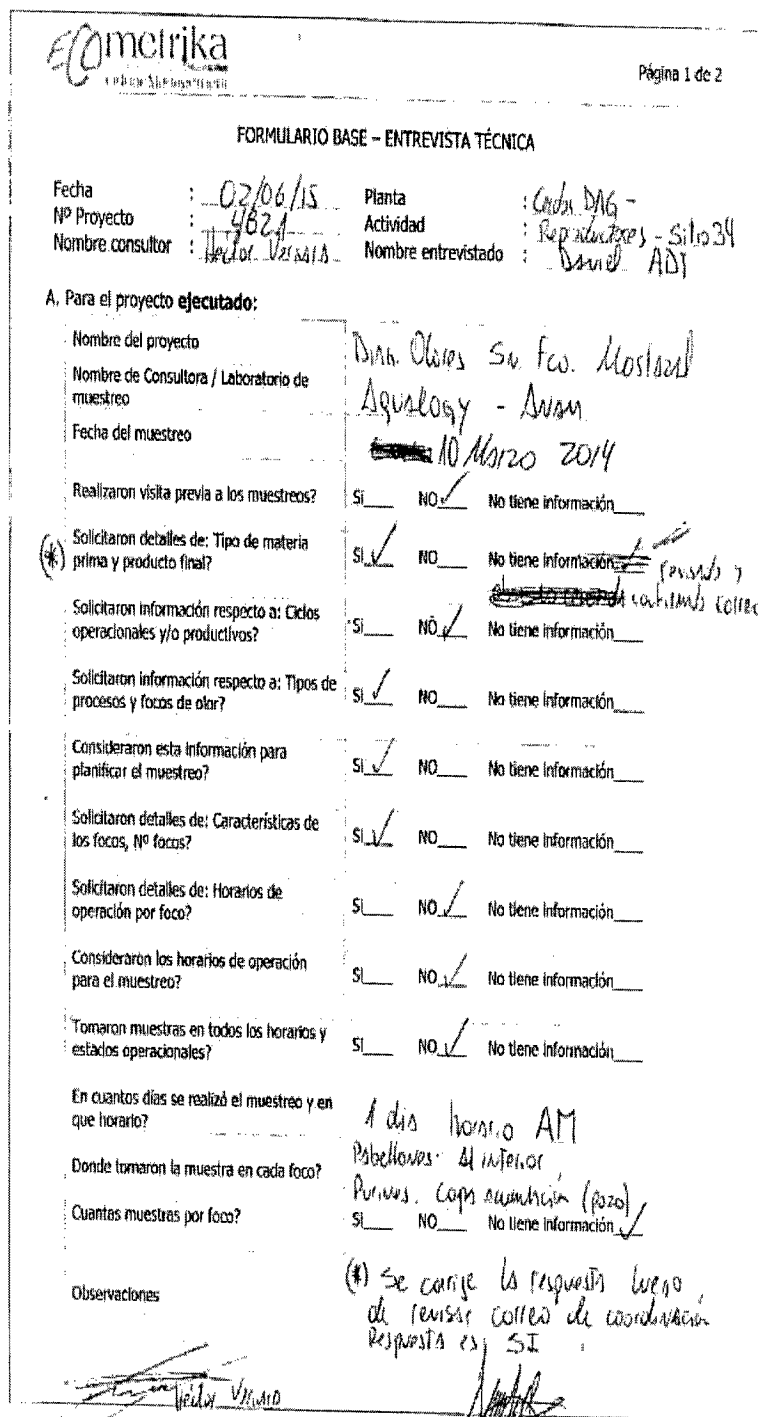 ECOmetrika
Página 1 de 2
FORMULARIO BASE – ENTREVISTA TÉCNICA
Fecha : 02/06/15 Planta : Cerdos DAG -
Nº Proyecto : 4821 Actividad : Reproductores - Sitio 34
Nombre consultor : Héctor Nombre entrevistado : Daniel ADI
A. Para el proyecto ejecutado:
Nombre del proyecto Olores Sn. Fco. Mostazal
Nombre de Consultora / Laboratorio de
muestreo Aqualogy - Anam
Fecha del muestreo 10 Marzo 2014
Realizaron visita previa a los muestreos? Si___ NO ✓ No tiene información___
(*) Solicitaron detalles de: Tipo de materia
prima y producto final? SI ✓ NO___ No tiene información ✓ revisando y
correo
Solicitaron información respecto a: Ciclos
operacionales y/o productivos? Si___ NO ✓ No tiene información___
Solicitaron información respecto a: Tipos de
procesos y focos de olor? SI ✓ NO___ No tiene información___
Consideraron esta información para
planificar el muestreo? SI ✓ NO___ No tiene información___
Solicitaron detalles de: Características de
los focos, Nº focos? SI ✓ NO___ No tiene información___
Solicitaron detalles de: Horarios de
operación por foco? SI___ NO ✓ No tiene información___
Consideraron los horarios de operación
para el muestreo? SI___ NO ✓ No tiene información___
Tomaron muestras en todos los horarios y
estados operacionales? SI___ NO ✓ No tiene información___
En cuantos días se realizó el muestreo y en
que horario? 1 dia horario AM
Donde tomaron la muestra en cada foco? Pabellones: Al interior
Purines. (pozo)
Cuantas muestras por foco? SI___ NO___ No tiene información ✓
Observaciones (*) Se corrige la respuesta luego
de revisar correo de coordinación
Respuesta es SI
Héctor